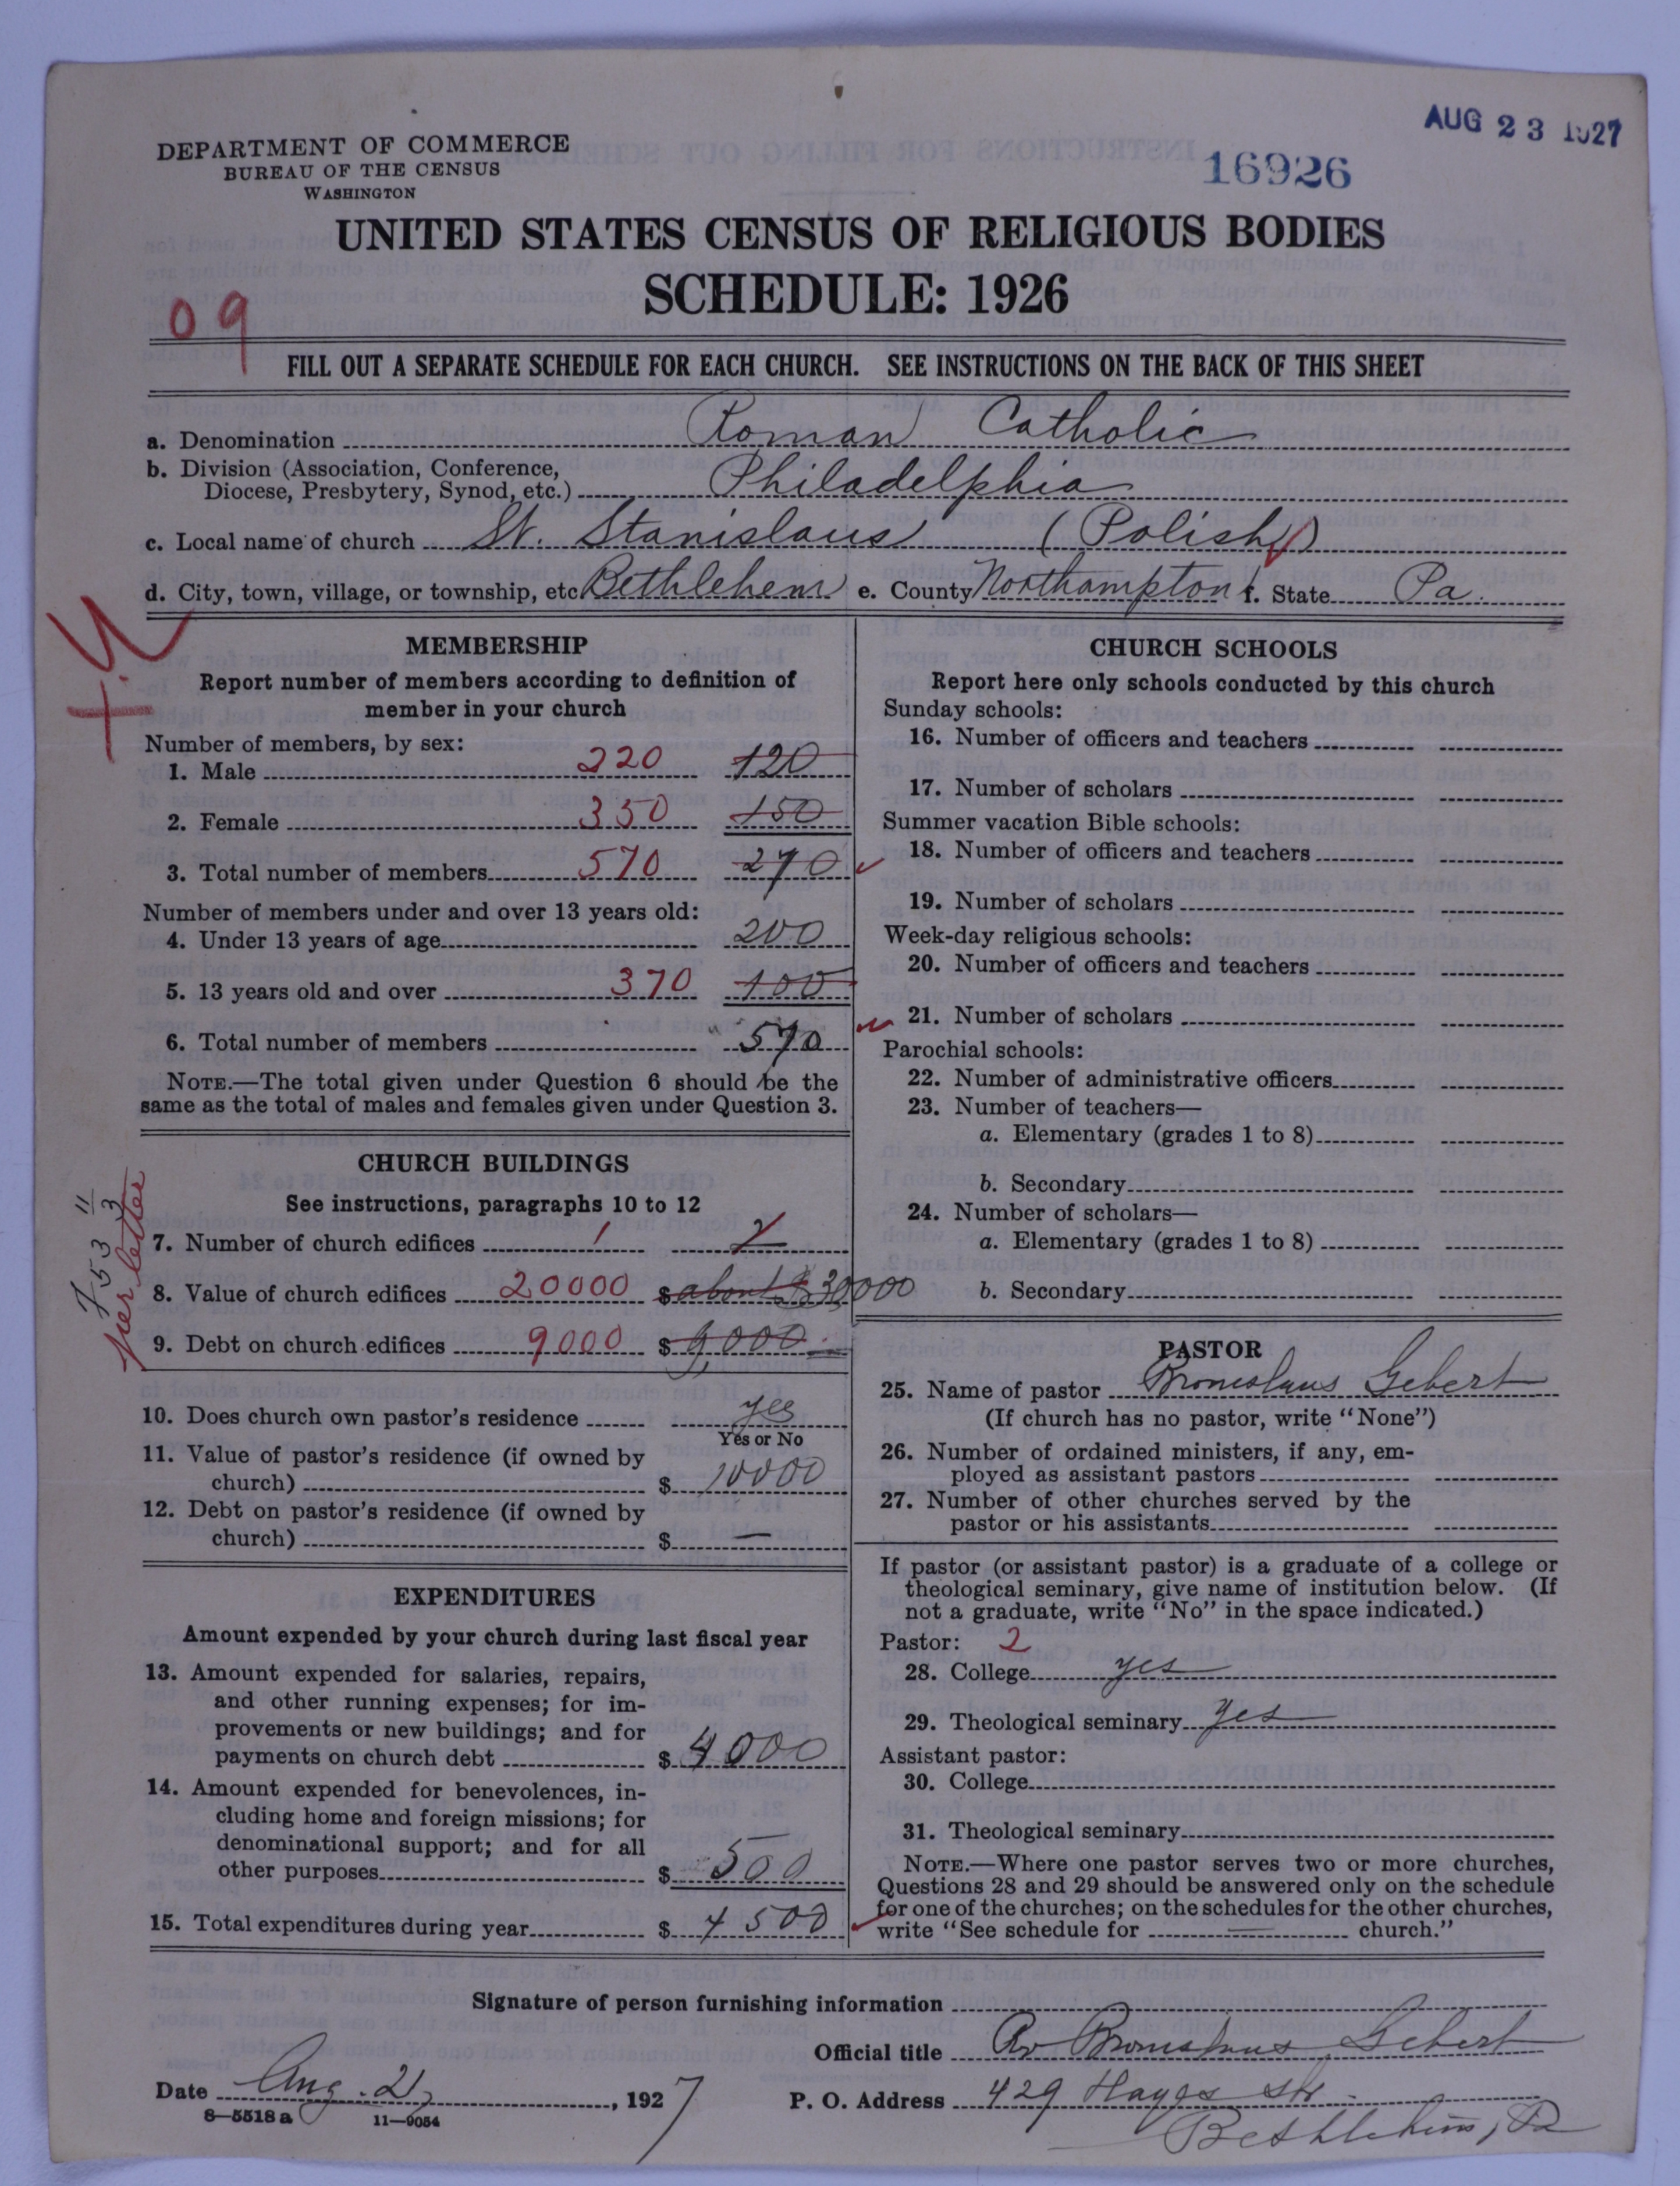 AUG 23 1927
DEPARTMENT OF COMMERCE
BUREAU OF THE CENSUS
WASHINGTON
16926
UNITED STATES CENSUS OF RELIGIOUS BODIES
SCHEDULE: 1926
09
FILL OUT A SEPARATE SCHEDULE FOR EACH CHURCH. SEE INSTRUCTIONS ON THE BACK OF THIS SHEET
a. Denomination Roman Catholic
b. Division (Association, Conference,
Diocese, Presbytery, Synod, etc.) Philadelphia
c. Local name of church St. Stanislaus (Polish)
d. City, town, village, or township, etc. Bethlehem e. County Northampton f. State Pa.
MEMBERSHIP
Report number of members according to definition of
member in your church
Number of members, by sex:
1. Male 220 120
2. Female 350 150
3. Total number of members 570 270
Number of members under and over 13 years old:
4. Under 13 years of age 200
5. 13 years old and over 370 100
6. Total number of members 570
NOTE.—The total given under Question 6 should be the
same as the total of males and females given under Question 3.
CHURCH BUILDINGS
See instructions, paragraphs 10 to 12
per letter
7. Number of church edifices 1 2
8. Value of church edifices 20000 $ about $30000
9. Debt on church edifices 9000 $ 9,000
10. Does church own pastor's residence yes
Yes or No
11. Value of pastor's residence (if owned by
church) $ 10000
12. Debt on pastor's residence (if owned by
church) $ —
EXPENDITURES
Amount expended by your church during last fiscal year
13. Amount expended for salaries, repairs,
and other running expenses; for im-
provements or new buildings; and for
payments on church debt $ 4000
14. Amount expended for benevolences, in-
cluding home and foreign missions; for
denominational support; and for all
other purposes $ 500
15. Total expenditures during year $ 4500
CHURCH SCHOOLS
Report here only schools conducted by this church
Sunday schools:
16. Number of officers and teachers
17. Number of scholars
Summer vacation Bible schools:
18. Number of officers and teachers
19. Number of scholars
Week-day religious schools:
20. Number of officers and teachers
21. Number of scholars
Parochial schools:
22. Number of administrative officers
23. Number of teachers—
a. Elementary (grades 1 to 8)
b. Secondary
24. Number of scholars—
a. Elementary (grades 1 to 8)
b. Secondary
PASTOR
25. Name of pastor Bronislaus Gebert
(If church has no pastor, write "None")
26. Number of ordained ministers, if any, em-
ployed as assistant pastors
27. Number of other churches served by the
pastor or his assistants
If pastor (or assistant pastor) is a graduate of a college or
theological seminary, give name of institution below. (If
not a graduate, write "No" in the space indicated.)
Pastor: 2
28. College yes
29. Theological seminary yes
Assistant pastor:
30. College
31. Theological seminary
NOTE.—Where one pastor serves two or more churches,
Questions 28 and 29 should be answered only on the schedule
for one of the churches; on the schedules for the other churches,
write "See schedule for — church."
Signature of person furnishing information
Official title Rv Bronislaus Gebert
Date Aug. 21, 1927 P. O. Address 429 Hayes str.
8—5518a 11—9054 Bethlehem, Pa